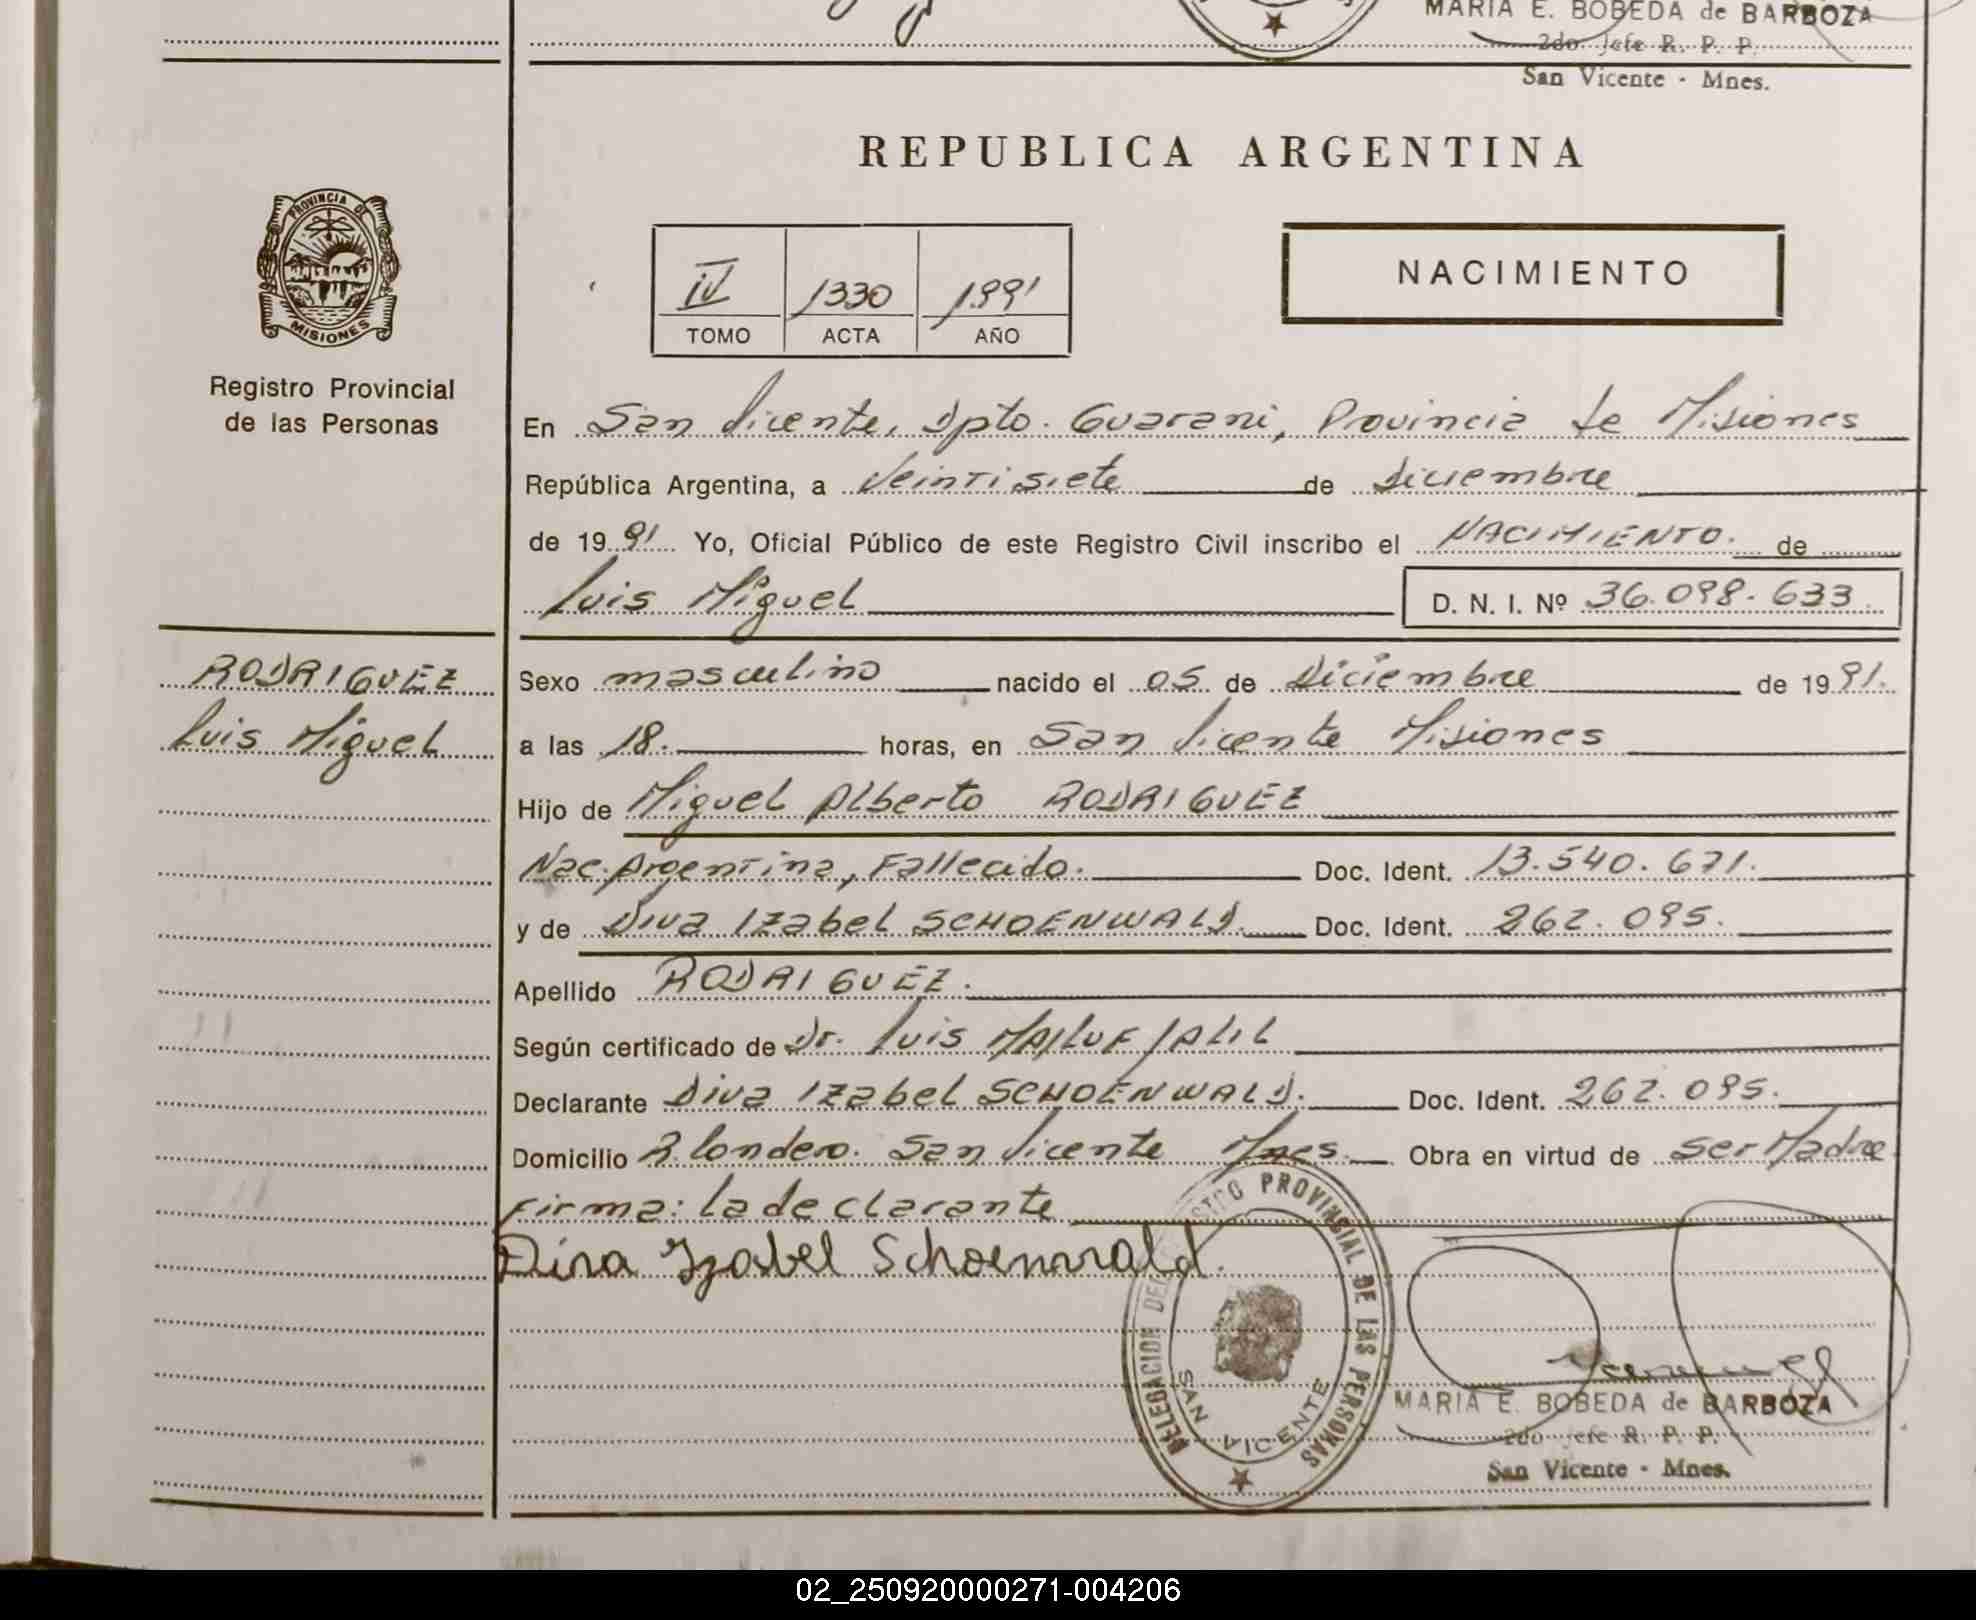 MARIA E. BOBEDA de BARBOZA
2do. Jefe R. P. P.
San Vicente - Mnes.
REPUBLICA ARGENTINA
PROVINCIA DE
MISIONES
Registro Provincial
de las Personas
IV 1330 1991
TOMO ACTA AÑO
NACIMIENTO
En San Vicente, Dpto. Guarani, Provincia de Misiones
República Argentina, a Veintisiete de Diciembre
de 1991 Yo, Oficial Público de este Registro Civil inscribo el NACIMIENTO. de
Luis Miguel D. N. I. Nº 36.098.633
RODRIGUEZ
Luis Miguel
Sexo masculino nacido el 05 de Diciembre de 1991.
a las 18. horas, en San Vicente Misiones
Hijo de Miguel Alberto RODRIGUEZ
Nac. Argentina, Fallecido. Doc. Ident. 13.540.671.
y de Diva Izabel SCHOENWALD. Doc. Ident. 262.095.
Apellido RODRIGUEZ.
Según certificado de Dr. Luis JALIL
Declarante Diva Izabel SCHOENWALD. Doc. Ident. 262.095.
Domicilio B. londero. San Vicente Mnes. Obra en virtud de ser Madre
Firma: la declarante
Diva Izabel Schoenwald.
DELEGACION DEL REGISTRO PROVINCIAL DE LAS PERSONAS
SAN VICENTE
MARIA E. BOBEDA de BARBOZA
2do Jefe R. P. P.
San Vicente - Mnes.
02_250920000271-004206